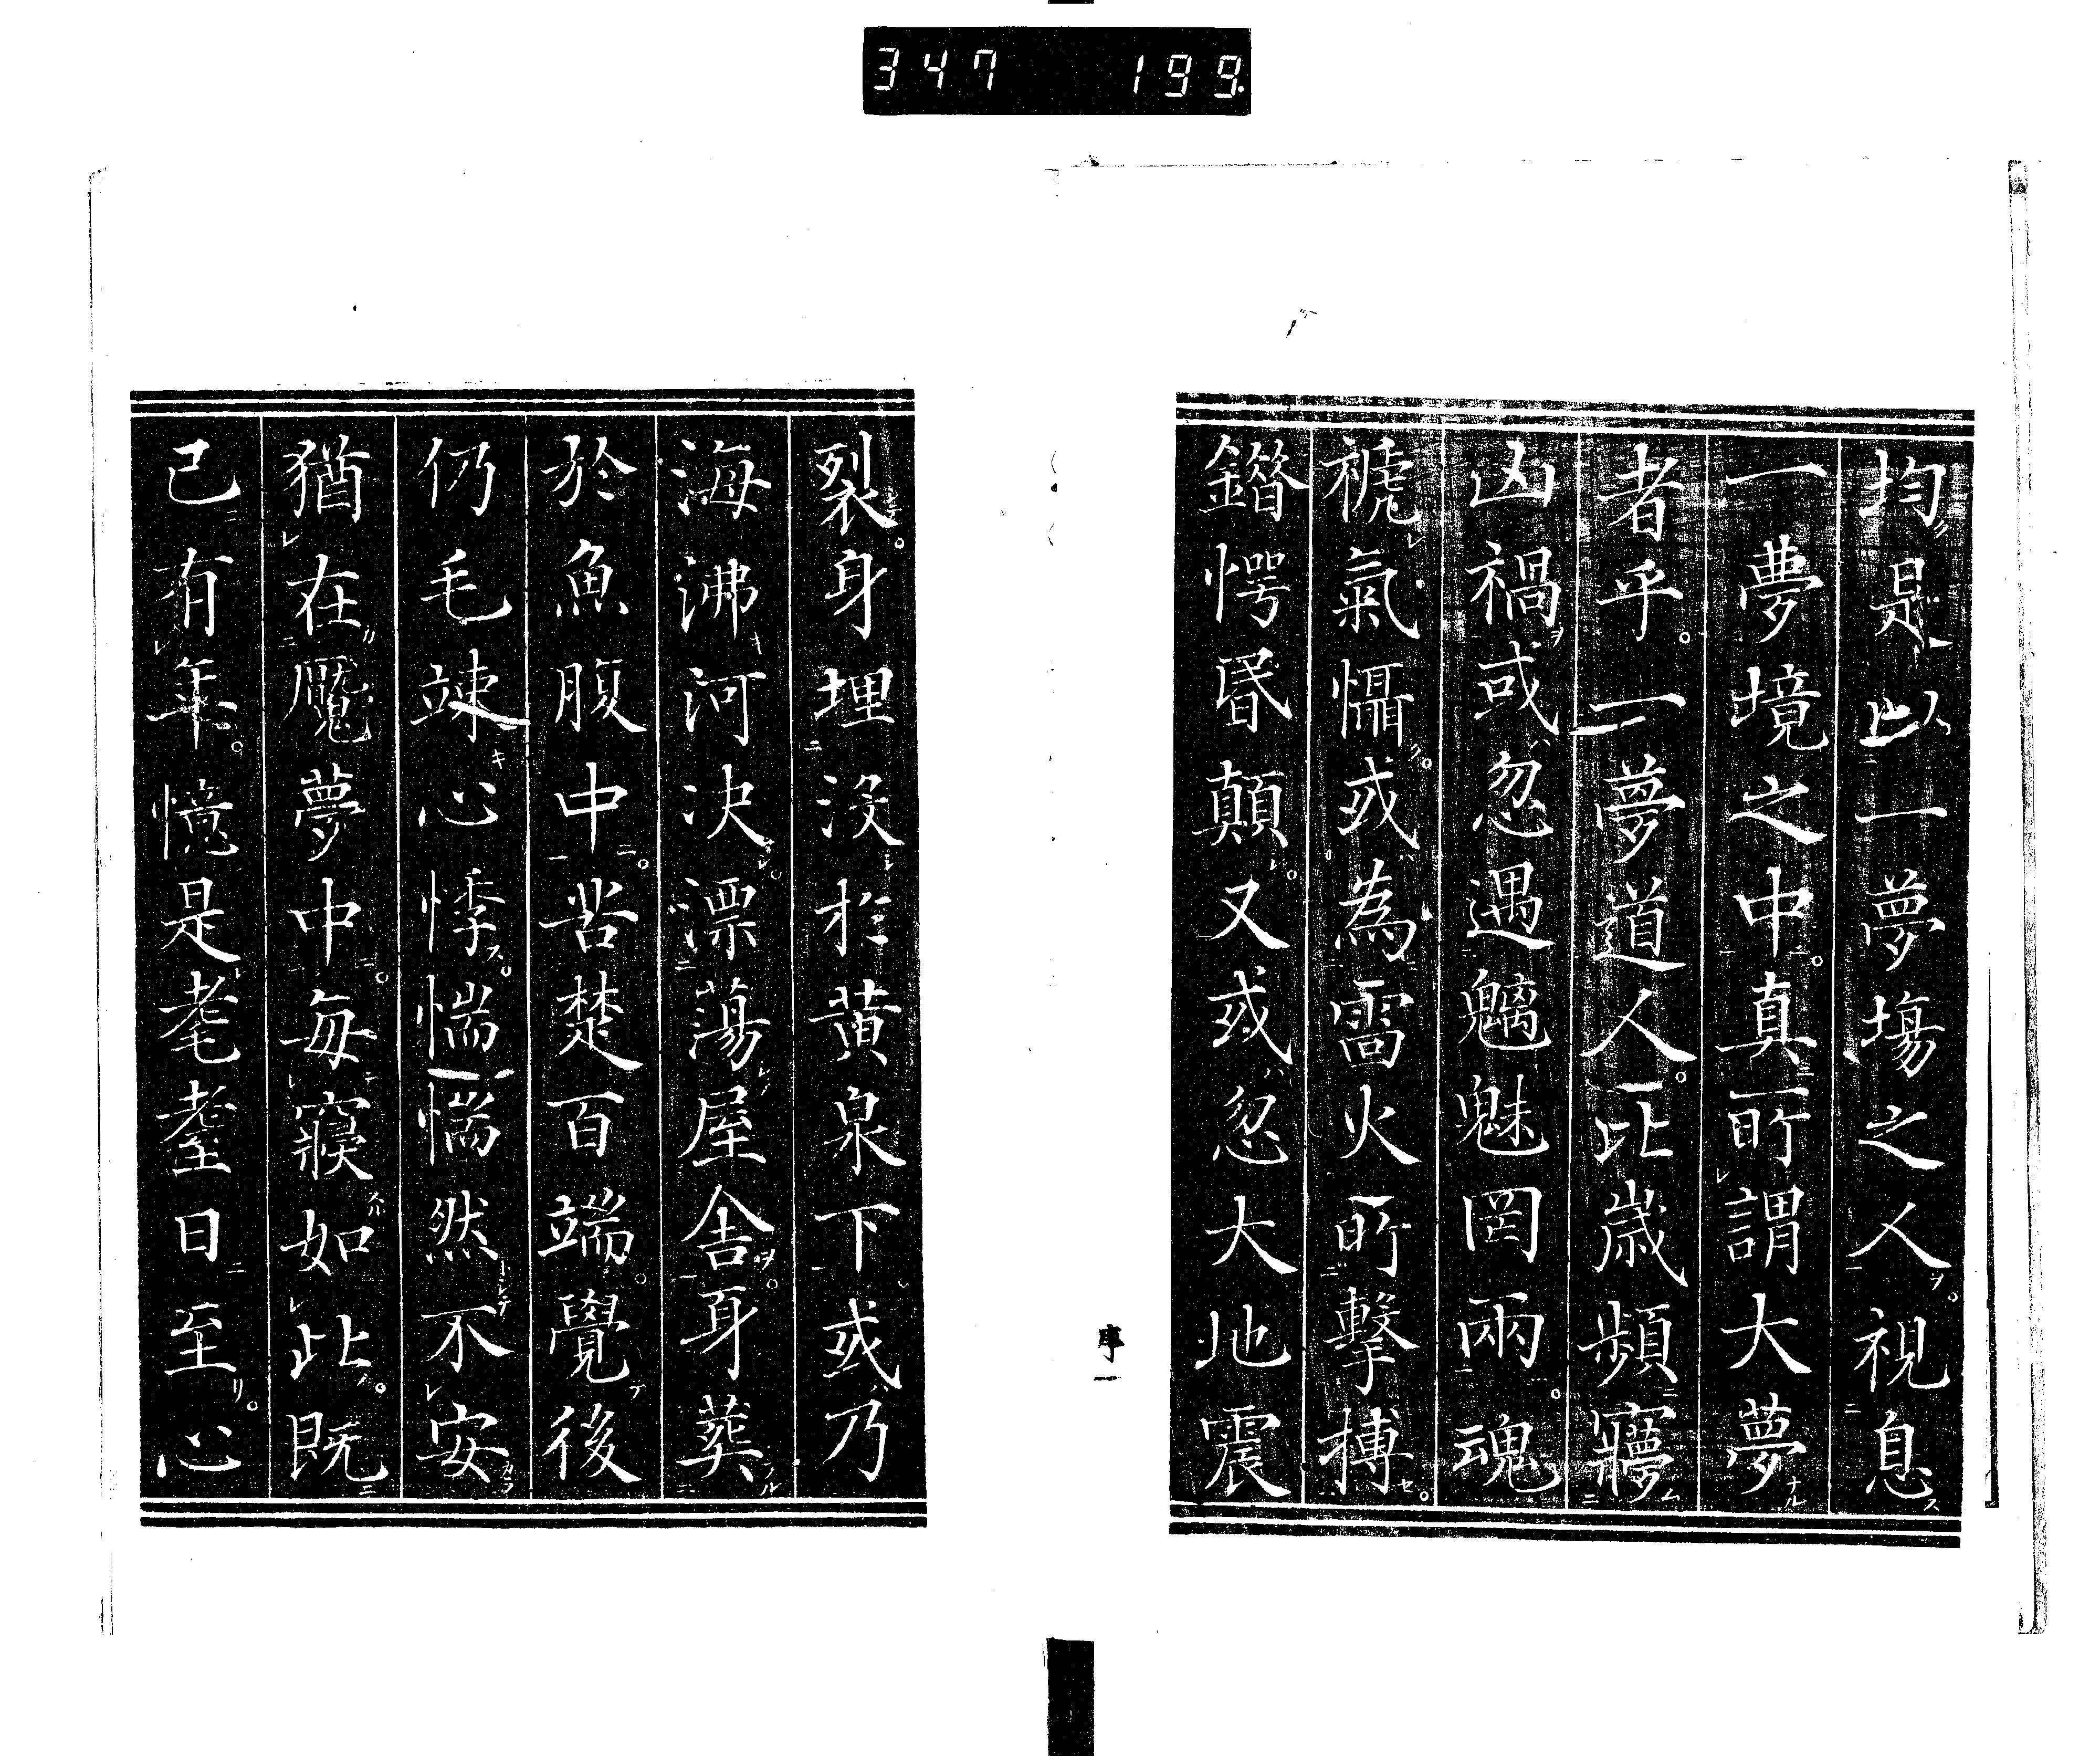 347 199
均是以一夢場之人視息
一夢境之中真所謂大夢
者乎一夢道人比歲頻寱
凶禍或忽遇魑魅罔兩魂
褫氣懾或為雷火所擊搏
鐕愕昏顛又或忽大地震
序一
裂身埋沒於黃泉下或乃
海沸河决漂蕩屋舍身葬
於魚腹中苦楚百端覺後
仍毛竦心悸惴惴然不安
猶在魘夢中每寢如此既
已有年憶是耄耋日至心